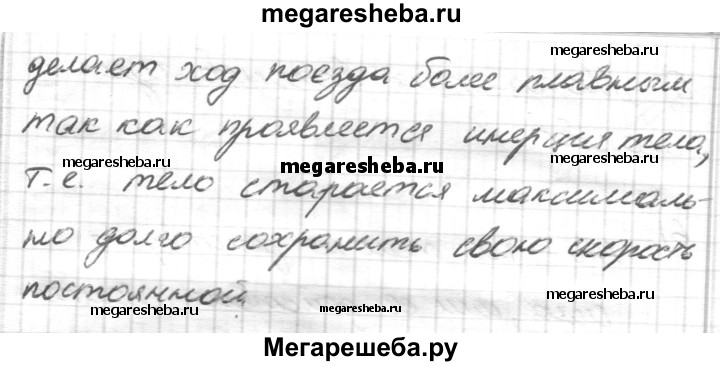 megaresheba.ru
делает ход поезда более плавным
megaresheba.ru megaresheba.ru
так как проявляется инерция тела,
megaresheba.ru megaresheba.ru megaresheba.ru
т.е. тело старается максималь-
но долго сохранить свою скорость
постоянной
megaresheba.ru megaresheba.ru megaresheba.ru
Мегарешеба.ру